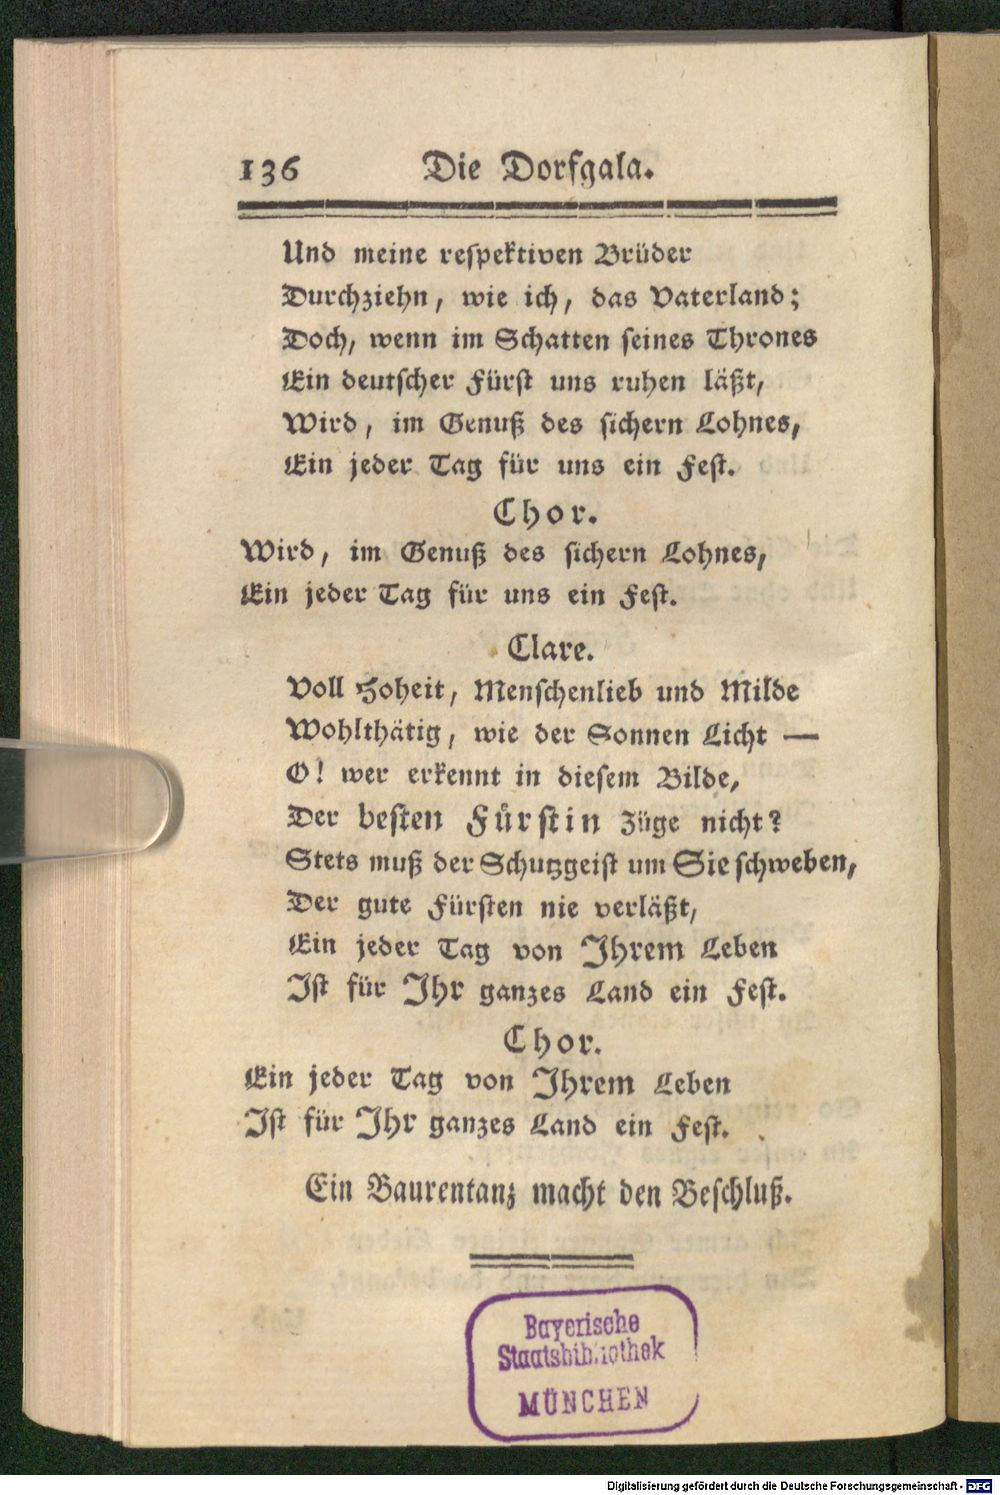 136 Die Dorfgala.
Und meine respektiven Brüder
Durchziehn, wie ich, das Vaterland;
Doch, wenn im Schatten seines Thrones
Ein deutscher Fürst uns ruhen läßt,
Wird, im Genuß des sichern Lohnes,
Ein jeder Tag für uns ein Fest.
Chor.
Wird, im Genuß des sichern Lohnes,
Ein jeder Tag für uns ein Fest.
Clare.
Voll Hoheit, Menschenlieb und Milde
Wohlthätig, wie der Sonnen Licht —
O! wer erkennt in diesem Bilde,
Der besten Fürstin Züge nicht?
Stets muß der Schutzgeist um Sie schweben,
Der gute Fürsten nie verläßt,
Ein jeder Tag von Ihrem Leben
Ist für Ihr ganzes Land ein Fest.
Chor.
Ein jeder Tag von Ihrem Leben
Ist für Ihr ganzes Land ein Fest.
Ein Baurentanz macht den Beschluß.
Bayerische
Staatsbibliothek
MÜNCHEN
Digitalisierung gefördert durch die Deutsche Forschungsgemeinschaft - DFG